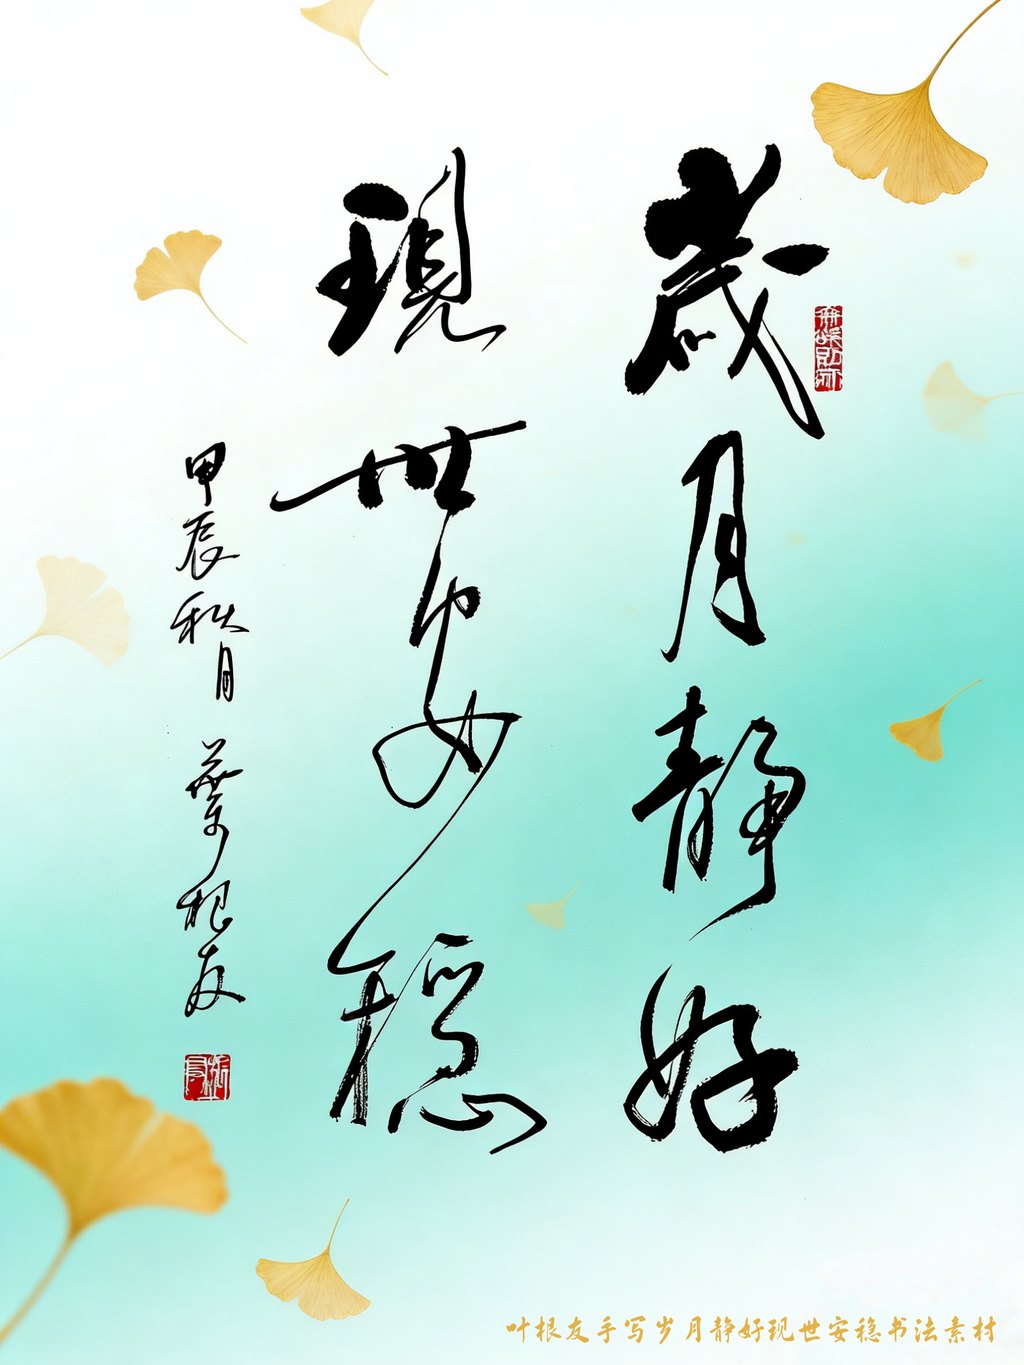 歲月靜好
現世安穩
甲辰秋月
葉根友
叶根友手写岁月静好现世安稳书法素材